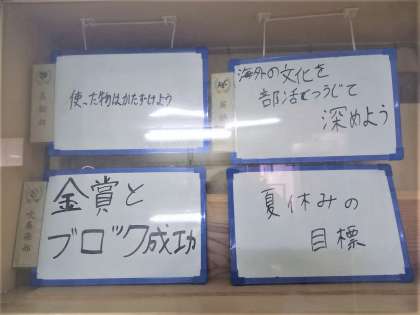 使った物はかたずけよう
海外の文化を
部活をつうじて
深めよう
金賞と
ブロック成功
夏休みの
目標